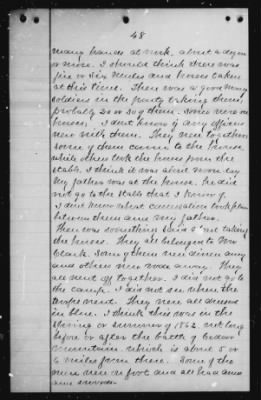 48
many hands at work, about a dozen
or more. I should think there was
five or six mules and horses taken
at this time. There was a good many
soldiers in the party taking them,
probably 20 or 30 of them. Some were on
horses, I don't know if any officers
were with them. They were together
some of them came to the house,
while others took the horses from the
stable. I think it was about noon day
My father was at the house. He did
not go to the stable that I know of
I don't know what conversation took place
between them and my father.
There was something said about taking
the horses. They all belonged to Mr
Clark. Some of them were driven away
and others were rode away. They
all went off together. I did not go to
the camp. I did not see when the
troops went. They were all dressed
in blue. I think this was in the
Spring or summer of 1862, not long
before or after the battle of Cedar
mountain. which is about 5 or
6 miles from there. Some of the
men were on foot and all had arms
and swords.